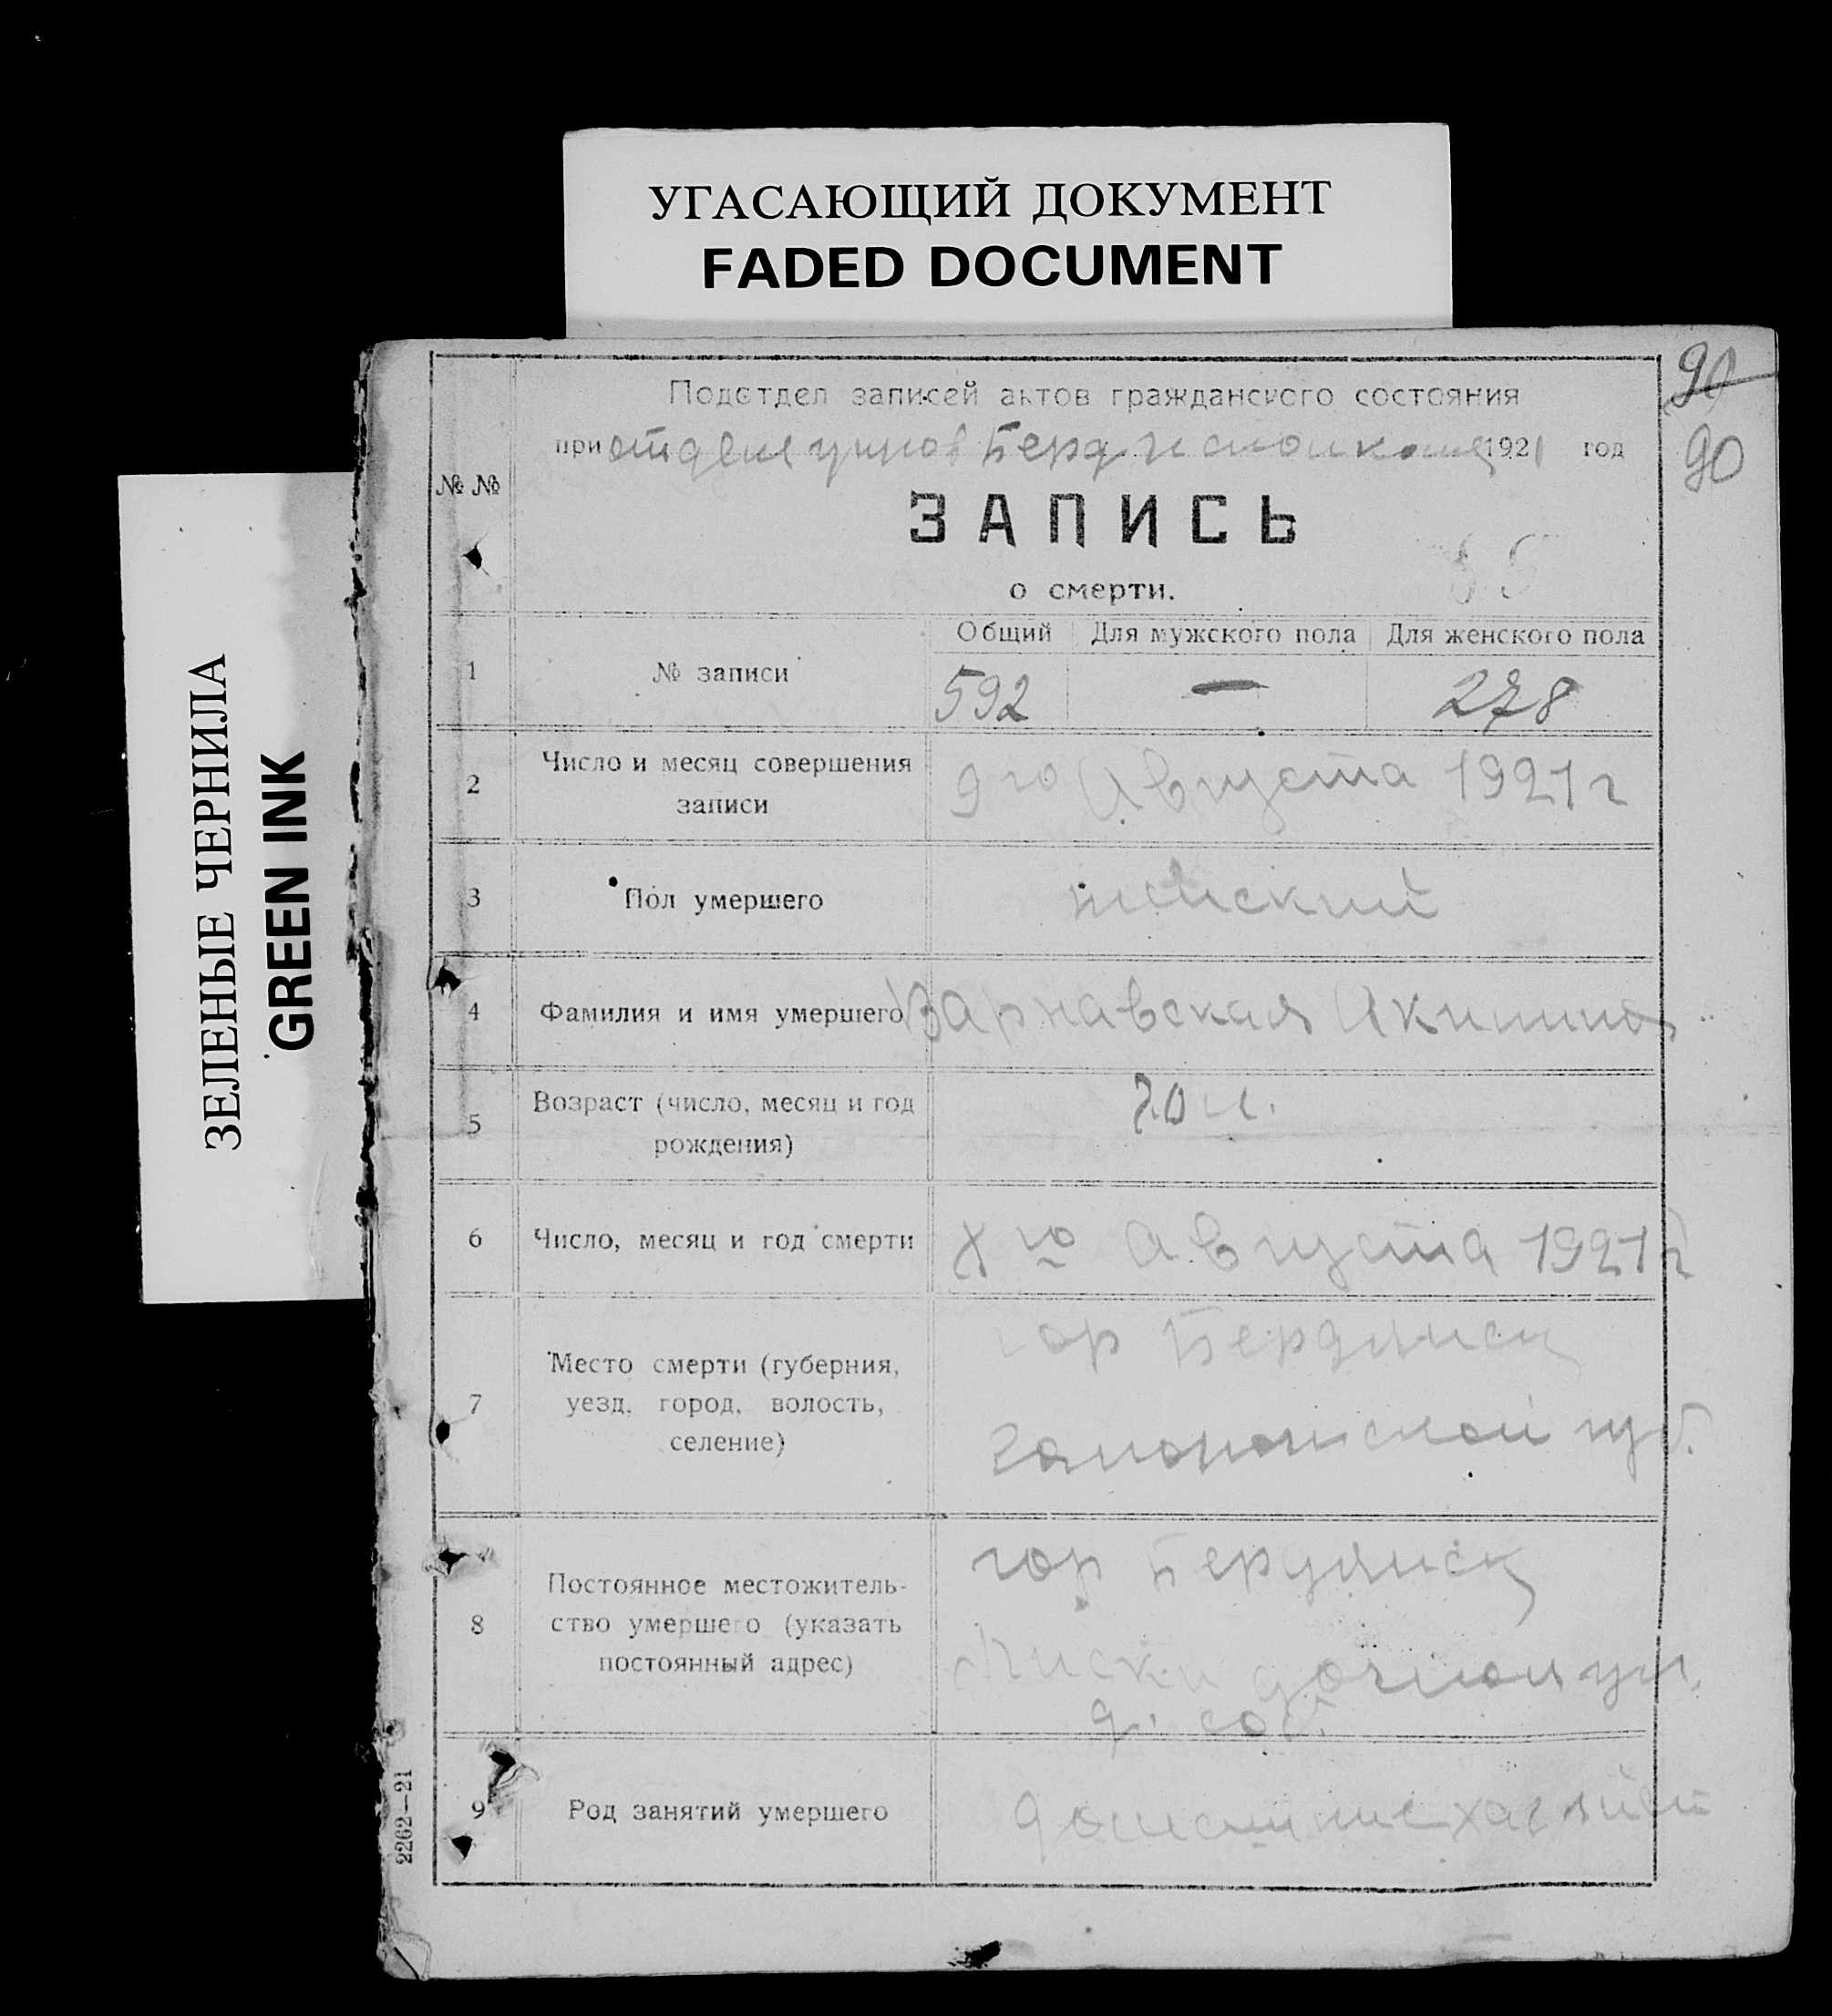 УГАСАЮЩИЙ ДОКУМЕНТ
FADED DOCUMENT
ЗЕЛЕНЫЕ ЧЕРНИЛА
GREEN INK
90
90
Подотдел записей актов гражданского состояния
при отделе Берд 1921 год
№ №
ЗАПИСЬ
о смерти.
Общий Для мужского пола Для женского пола
1 № записи 592 — 278
2 Число и месяц совершения
записи
9го Августа 1921 г
3 Пол умершего женский
4 Фамилия и имя умершего Варнавская
5 Возраст (число, месяц и год
рождения)
70 л.
6 Число, месяц и год смерти го Августа 1921 г
7 Место смерти (губерния,
уезд, город, волость,
селение)
гор Бердянск
Запорожской губ.
8 Постоянное местожитель-
ство умершего (указать
постоянный адрес)
гор Бердянск
Лиски ул.
д. соб.
9 Род занятий умершего
2262—21